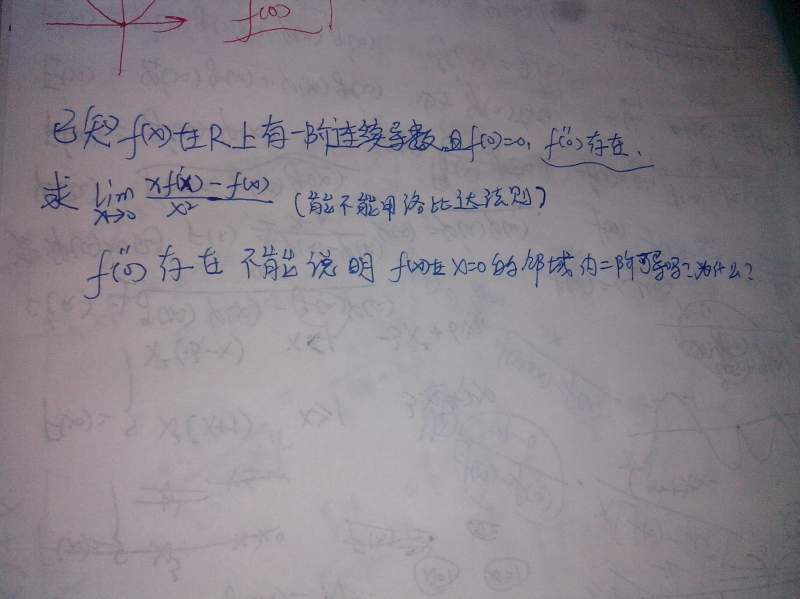 f(0)
已知 f(x)在R上有一阶连续导数,且f(0)=0, f''(0)存在.
求 lim x→0 xf'(x)-f(x) / x² (能不能用洛比达法则)
f''(0) 存在 不能说明 f(x)在x=0的邻域内二阶可导吗?为什么?